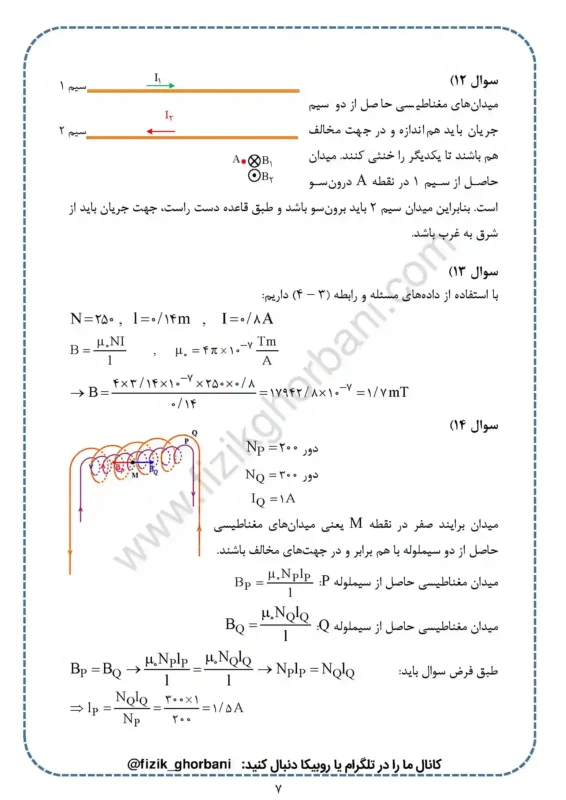 سوال ۱۲)
سیم ۱
I₁
میدان‌های مغناطیسی حاصل از دو سیم
I₂
جریان باید هم‌اندازه و در جهت مخالف
سیم ۲
هم باشند تا یکدیگر را خنثی کنند. میدان
A B₁
B₂
حاصل از سیم ۱ در نقطه A درون‌سو
است. بنابراین میدان سیم ۲ باید برون‌سو باشد و طبق قاعده دست راست، جهت جریان باید از
شرق به غرب باشد.
سوال ۱۳)
با استفاده از داده‌های مسئله و رابطه (۳ – ۴) داریم:
N=۲۵۰ , l=۰/۱۴m , I=۰/۸A
B = μ₀NI / l , μ₀ = ۴π×۱۰⁻⁷ Tm / A
→ B = ۴×۳/۱۴×۱۰⁻⁷×۲۵۰×۰/۸ / ۰/۱۴ = ۱۷۹۴۲/۸×۱۰⁻⁷ = ۱/۷mT
سوال ۱۴)
Q
P
B_P
B_Q
M
N_P = ۲۰۰ دور
N_Q = ۳۰۰ دور
I_Q = ۱A
میدان برایند صفر در نقطه M یعنی میدان‌های مغناطیسی
حاصل از دو سیملوله با هم برابر و در جهت‌های مخالف باشند.
میدان مغناطیسی حاصل از سیملوله P: B_P = μ₀N_Pl_P / l
میدان مغناطیسی حاصل از سیملوله Q: B_Q = μ₀N_Ql_Q / l
طبق فرض سوال باید: B_P = B_Q → μ₀N_Pl_P / l = μ₀N_Ql_Q / l → N_Pl_P = N_Ql_Q
⇒ l_P = N_Ql_Q / N_P = ۳۰۰×۱ / ۲۰۰ = ۱/۵A
www.fizikghorbani.com
کانال ما را در تلگرام یا روبیکا دنبال کنید: @fizik_ghorbani
۷